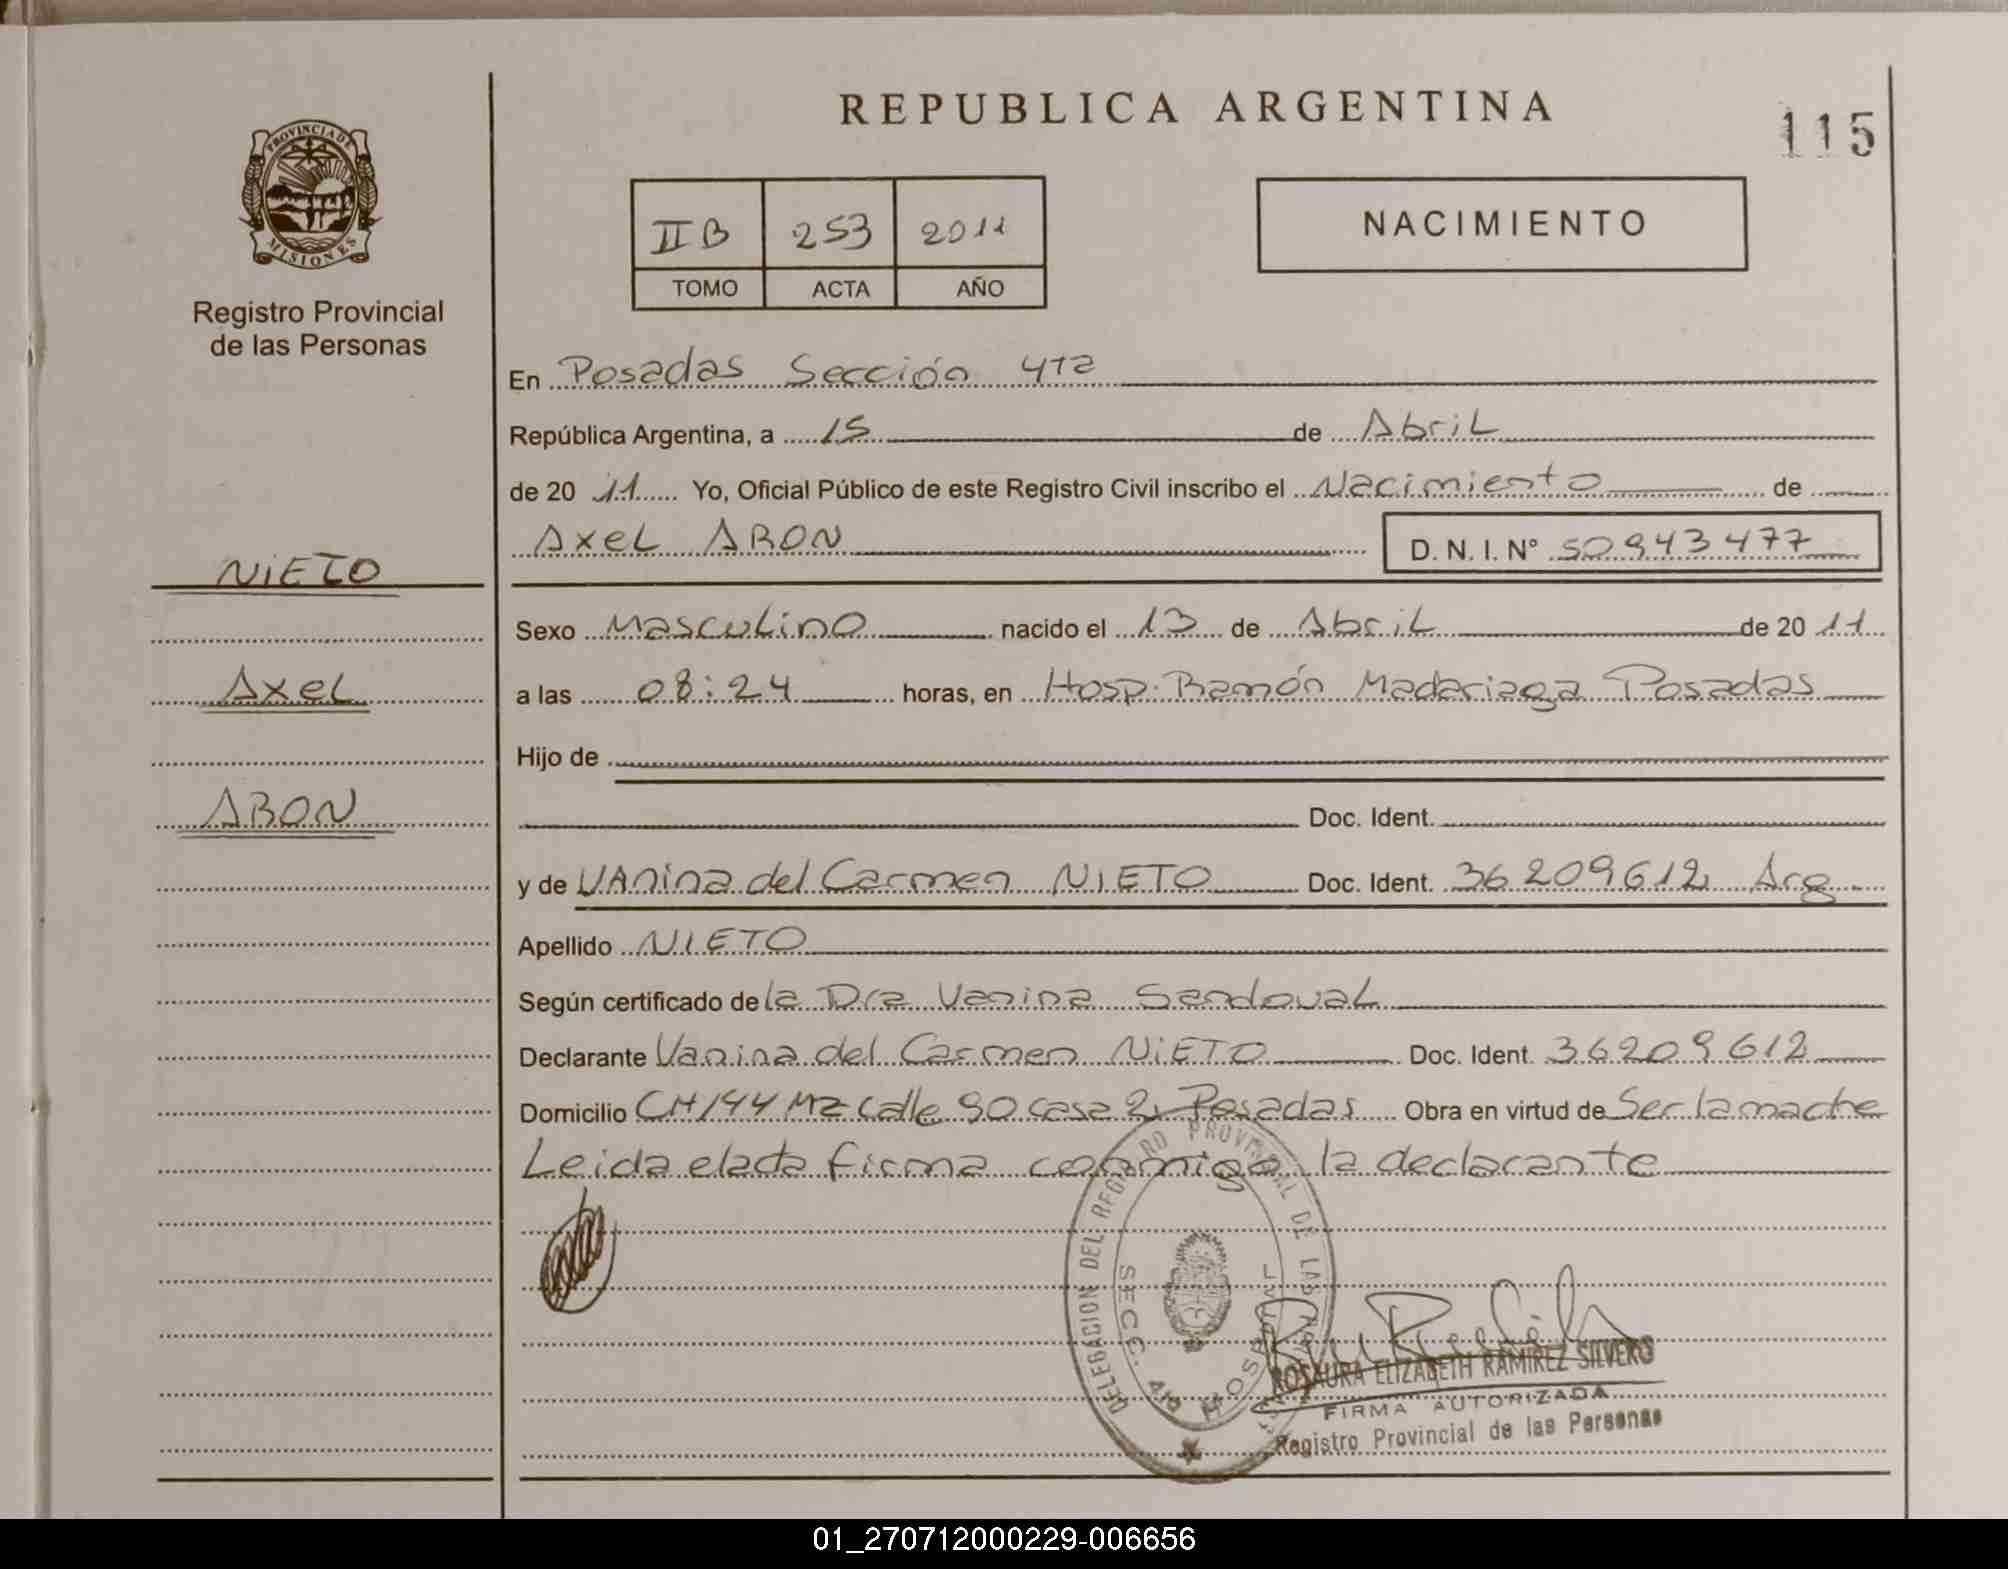 REPUBLICA ARGENTINA
115
PROVINCIA DE
MISIONES
Registro Provincial
de las Personas
II B 253 2011
TOMO ACTA AÑO
NACIMIENTO
En Posadas Sección 4ta
República Argentina, a 15 de Abril
de 20 11 Yo, Oficial Público de este Registro Civil inscribo el Nacimiento de
Axel ARON D. N. I. N° 50943477
NIETO
Sexo Masculino nacido el 13 de Abril de 20 11
Axel
a las 08:24 horas, en Hosp. Ramón Madariaga Posadas
Hijo de
ARON
Doc. Ident.
y de VAnina del Carmen NIETO Doc. Ident. 36209612 Arg
Apellido NIETO
Según certificado de la Dra Vanina Sandoval
Declarante Vanina del Carmen NIETO Doc. Ident. 36209612
Domicilio CH 144 Mz Calle 90 casa 2 Posadas Obra en virtud de Ser la madre
Leida el acta firma conmigo la declarante
DELEGACION DEL REGISTRO PROVINCIAL DE LAS
SECC. 4ta HOSPITAL
ROSAURA ELIZABETH RAMIREZ SILVERO
FIRMA AUTORIZADA
Registro Provincial de las Personas
01_270712000229-006656